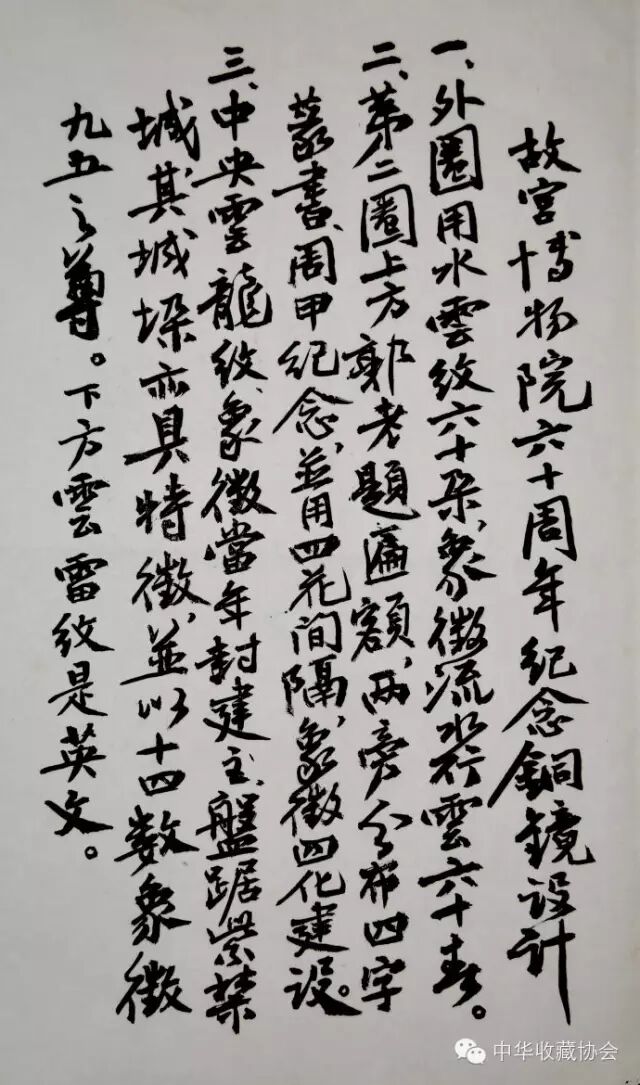 故宫博物院六十周年纪念銅鏡设计
一、外圈用水雲纹六十朶,象徵流水行雲六十春。
二、苐二圈上方郭老題匾額,两旁分布四字
篆書,周甲纪念,並用四花间隔,象徵四化建设。
三、中央雲龍纹,象徵當年封建主,盤踞紫禁
城其城垛亦具特徵,並以十四数象徵
九五之尊。下方雲雷纹是英文。
中华收藏协会